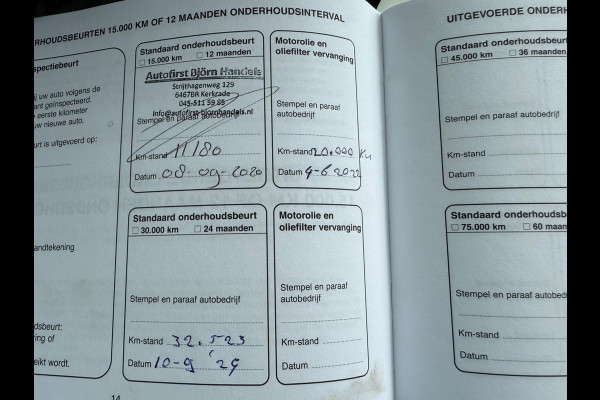 RHOUDSBEURTEN 15.000 KM OF 12 MAANDEN ONDERHOUDSINTERVAL
spectiebeurt
ij uw auto volgens de
ant geïnspecteerd.
e eerste kilometer
uw nieuwe auto.
urt is uitgevoerd op:
andtekening
dsbeurt:
ring of
eikt wordt.
Standaard onderhoudsbeurt
15.000 km 12 maanden
Autofirst Björn Handels
Strijthagenweg 129
6467BR Kerkrade
045-511 59 85
info@autofirst-bjornhandels.nl
Stempel en paraaf autobedrijf
Km-stand 11180
Datum 08-09-2020
Motorolie en
oliefilter vervanging
Stempel en paraaf
autobedrijf
Km-stand 20.000 Km
Datum 4-6 2022
Standaard onderhoudsbeurt
30.000 km 24 maanden
Stempel en paraaf autobedrijf
Km-stand 32.523
Datum 10-9 '24
Motorolie en
oliefilter vervanging
Stempel en paraaf
autobedrijf
Km-stand
Datum
14
UITGEVOERDE ONDERH
Standaard onderhoudsb
45.000 km 36 maanden
Stempel en paraaf autobedr
Km-stand
Datum
Standaard onderhoudsb
75.000 km 60 maan
Stempel en paraaf autobed
Km-stand
Datum